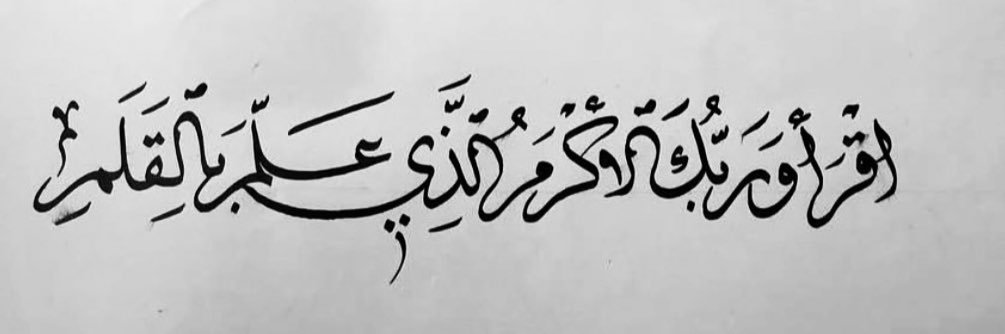 اقْرَأْ وَرَبُّكَ الأَكْرَمُ الَّذِي عَلَّمَ بِالْقَلَمِ